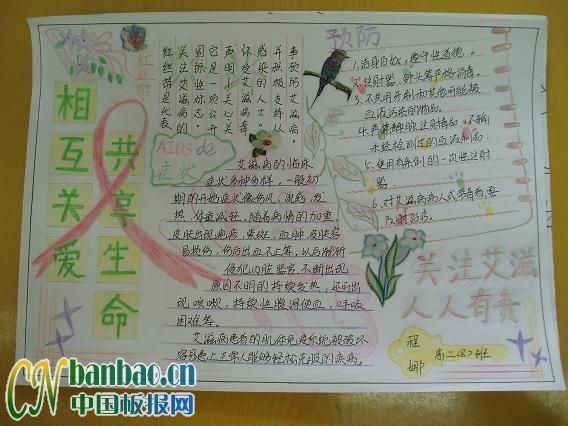 相互关爱
共享生命
红丝带
红丝带是
关注艾滋病的
国际性标志。
它是一项公开
声明关心艾滋
怀
感染
并积极支持从
事预防艾滋病
AIDS de
症状
艾滋病的临床
症状多种多样，一般初
期的开始症状像伤风、流感、发
热、体重减轻，随着病情的加重，
皮肤出现疱疹、紫斑、血肿，皮肤容
易损伤，伤后出血不止等，以后渐渐
侵犯内脏器官，不断出现
原因不明的持续发热，还可出
现咳嗽，持续性腹泻便血，呼吸
困难等。
艾滋病患者的肌体免疫系统被破坏
容易患上正常人能够轻松克服的疾病。
预防
1.洁身自好，遵守性道德。
2.注射器、针头等严格消毒。
3.不共用牙刷和其他可能被
血液污染的物品。
4.严禁静脉注射毒品，不输
未经检测过的血液制品。
5.使用自来创的一次性注射
器。
6.对艾滋病病人或带毒者要
关注艾滋
人人有责
程
娜
高二(8)班
CN banbao.cn
中国板报网